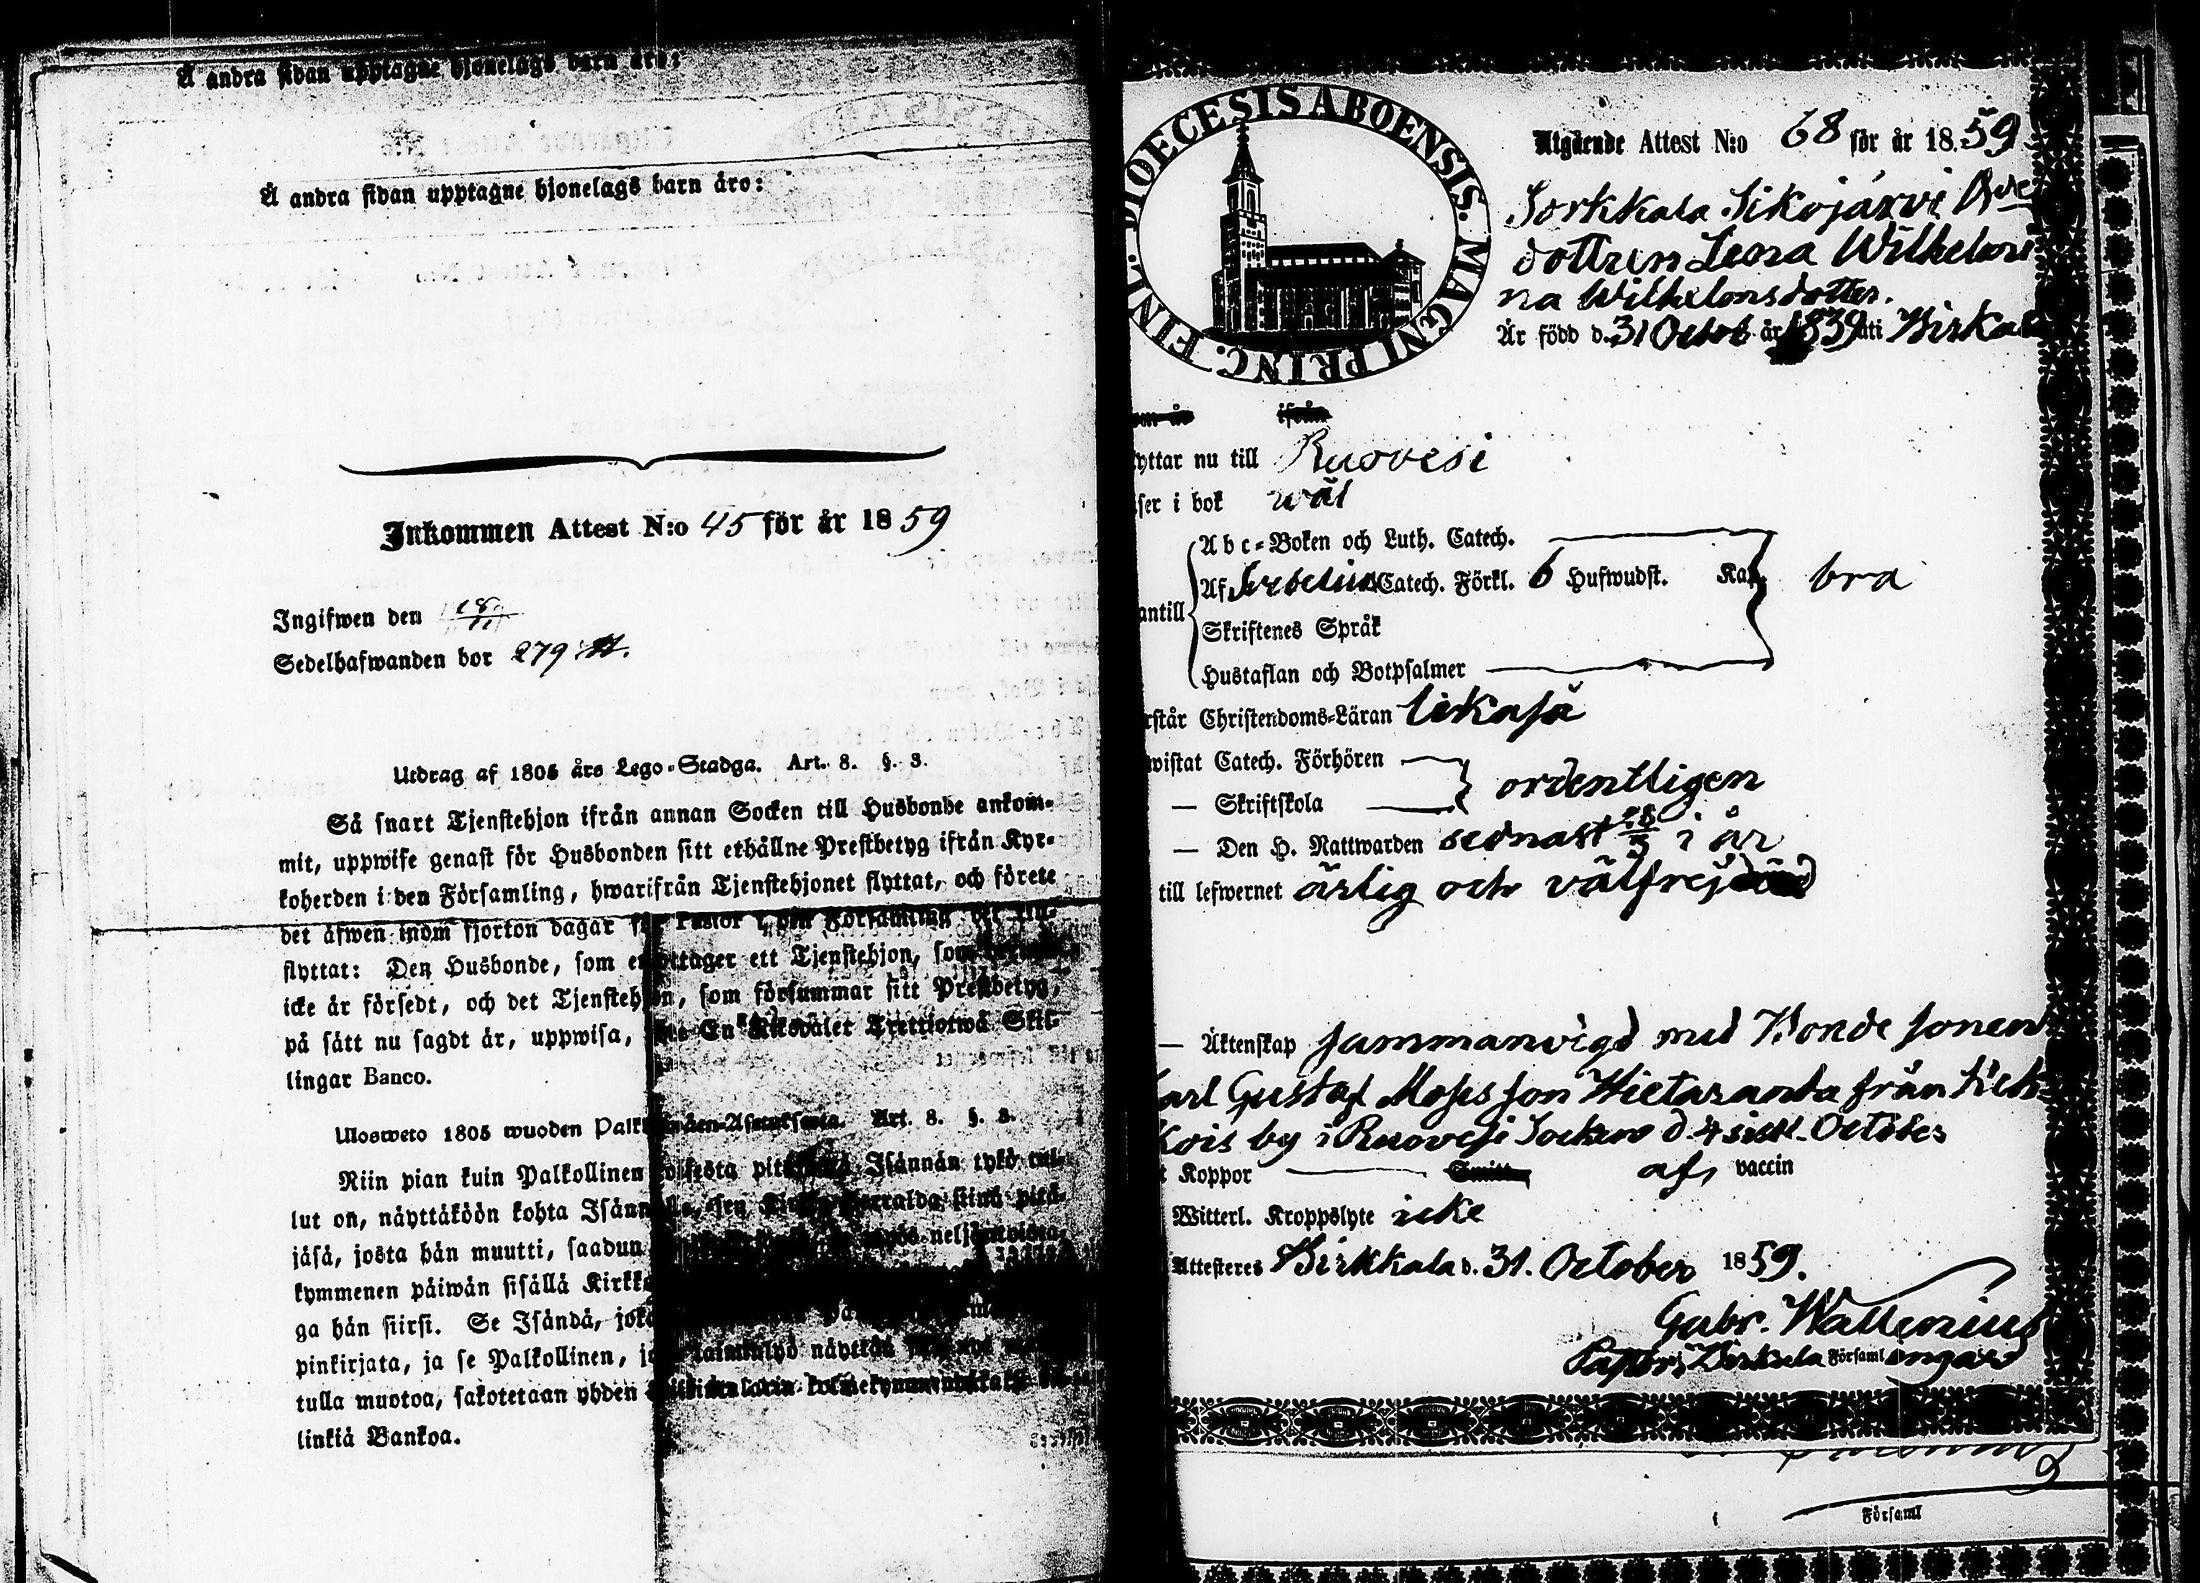 Å andra sidan upptagne hjonelags barn äro:
Å andra sidan upptagne hjonelags barn äro:
Inkommen Attest N:o 45 för år 1859
Ingifwen den 18/11
Sedelhafwanden bor 279
Utdrag af 1805 års Lego-Stadga. Art. 8. §. 3.
Så snart Tjenstehjon ifrån annan Socken till Husbonde ankom-
mit, uppwise genast för Husbonden sitt erhållne Prestbetyg ifrån Kyr-
koherden i den Församling, hwarifrån Tjenstehjonet flyttat, och förete
det äfwen inom fjorton dagar Pastor i den Församling
flyttat: Den Husbonde, som emottager ett Tjenstehjon, som
icke är försedt, och det Tjenstehjon, som försummar sitt Prestbetyg,
på sätt nu sagdt är, uppwisa, En Riksdaler Trettiotwå Skil-
lingar Banco.
Ulosweto 1805 wuoden Palkollisten-Asetuksesta. Art. 8. §. 3.
Niin pian kuin Palkollinen toisesta pitäjästä Isännän tykö tul-
lut on, näyttäköön kohta Isännälle, sen Kirkkoherralda siinä pitä-
jäsä, josta hän muutti, saadun neljäntoista
kymmenen päiwän sisällä
ga hän siirsi. Se Isändä, joka
pinkirjata, ja se Palkollinen, näyttää
tulla muotoa, sakotetaan yhden kolmekymmendäkaksi
linkiä Bankoa.
FINL. DIOECESIS ABOENSIS. MAGNI PRINC.
Utgående Attest N:o 68 för år 1859
Sorkkala Sikojärvi
dottren Lena Wilhelmi
na Wilhelmsdotter.
Är född d. 31 Octob år 1839 uti Birkala
ifrån
yttar nu till Ruovesi
ser i bok wäl
Abc-Boken och Luth. Catech.
Af Svebelius Catech. Förkl. 6 Hufwudst. Kap bra
antill
Skriftenes Språk
Hustaflan och Botpsalmer
rstår Christendoms-Läran likaså
wistat Catech. Förhören
— Skriftskola ordentligen
— Den H. Nattwarden sednast i år
till lefwernet ärlig och välfrejdad
— Äktenskap sammanvigd med Bonde sonen
arl Gustaf Mosisson Hietaranta från
kois by i Ruovesi Socken d 4 sistl. October
t Koppor Smitt af vaccin
Witterl. Kroppslyte icke
Attesteres Birkkala d. 31. October 1859.
Gabr. Wallenius
Pastor i Birkala Församlingar
Församl